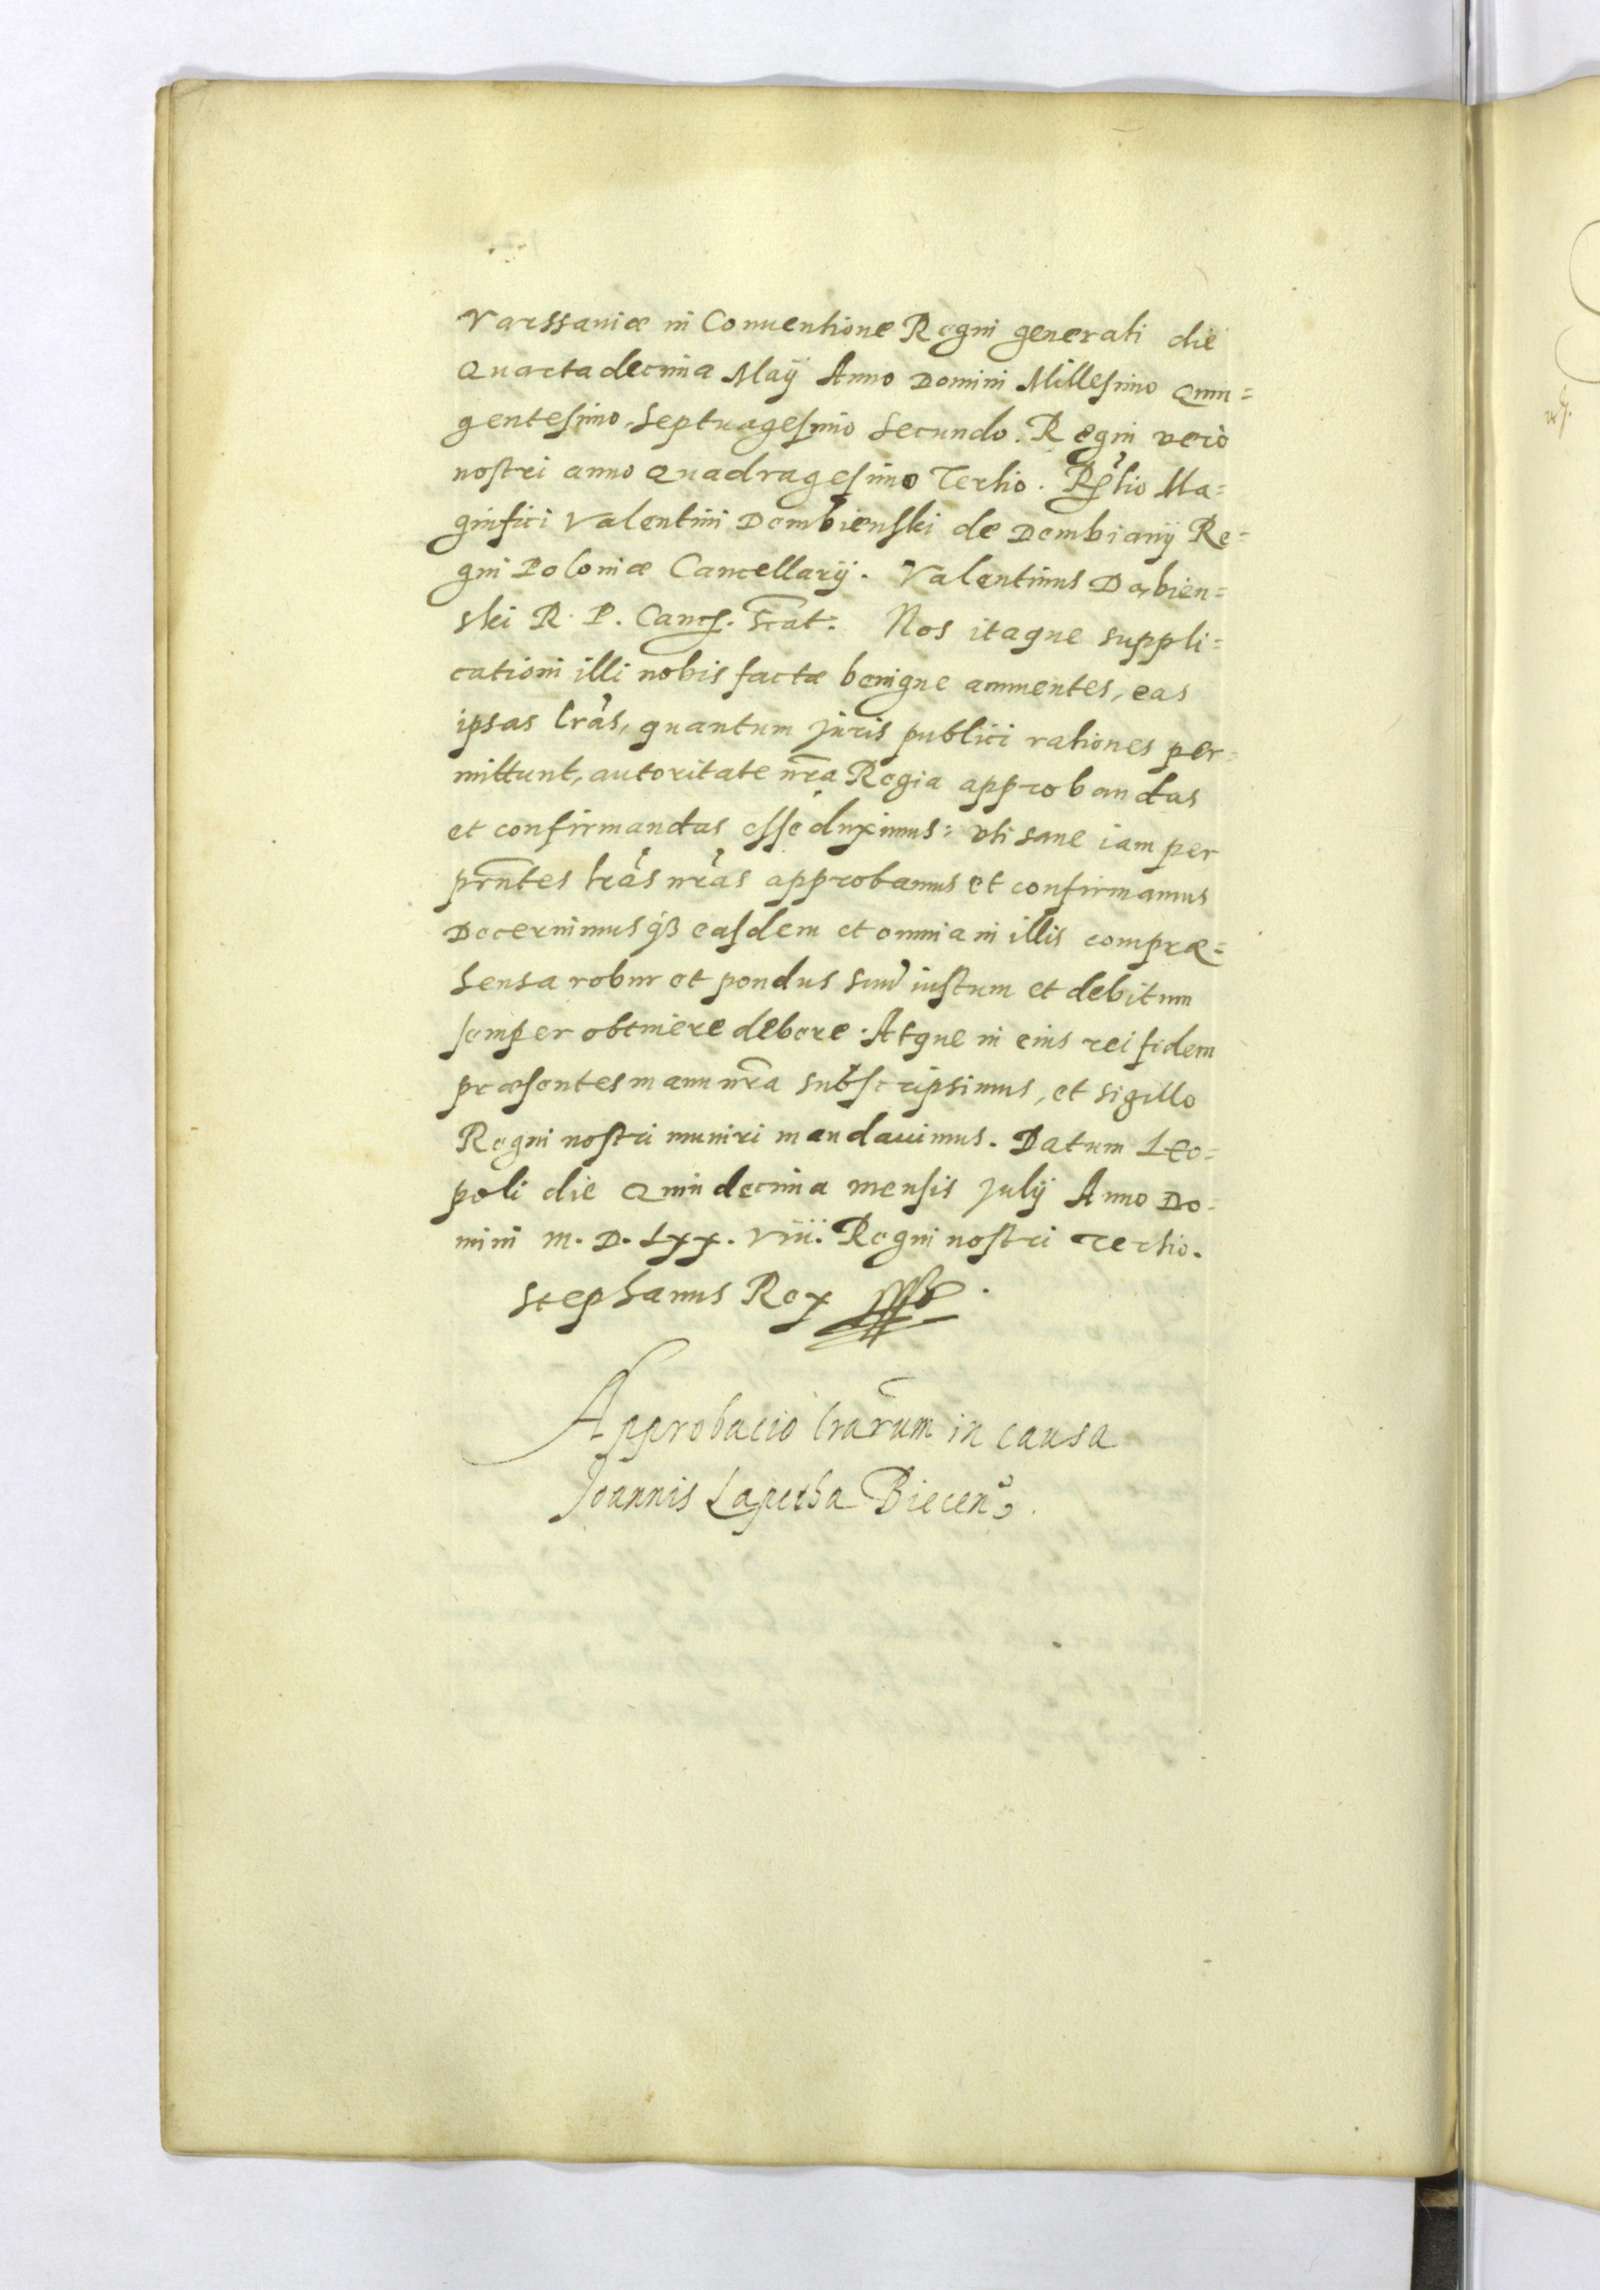 Varssaviæ in Conuentione Regni generali die
Quartadecima Maÿ Anno Domini Millesimo Quin=
gentesimo Septuagesimo Secundo. Regni verò
nostri anno Quadragesimo Tertio. Rltio Ma=
gnifici Valentini Dembienski de Dembianÿ Re=
gni Poloniæ Cancellarÿ. Valentinus Dąbien=
ski R. P. Canc. scat. Nos itaque suppli=
cationi illi nobis factæ benigne annuentes, eas
ipsas lras, quantum juris publici rationes per=
mittunt, autoritate nra Regia approbandas
et confirmandas esse duximus: vti sane iam per
prntes lras nras approbamus et confirmamus
Decernimusqȝ easdem et omnia in illis compræ=
hensa robur et pondus suũ iustum et debitum
semper obtinere debere. Atque in eius rei fidem
præsentes manu nra subscripsimus, et sigillo
Regni nostri muniri mandauimus. Datum Leo=
poli die Quindecima mensis Julÿ Anno Do=
mini M. D. Lxx. Viii. Regni nostri Tertio.
Stephanus Rex
Approbacio lrarum in causa
Joannis Lapetha Biecen